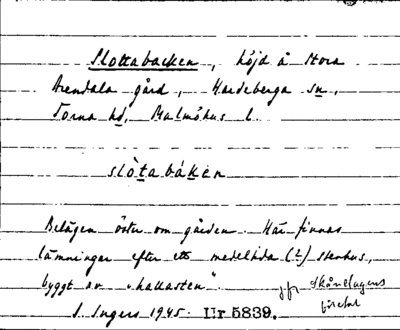 Slottabacken, höjd å Stora
Arendala gård, Hardeberga sn,
Torna hd, Malmöhus l.
slòtabákен
Belägen öster om gården. Här finnas
lämningar efter ett medeltida (?) stenhus,
byggt av "hallasten". jfr Skånelagens
S. Ingers 1945. Nr 5839.